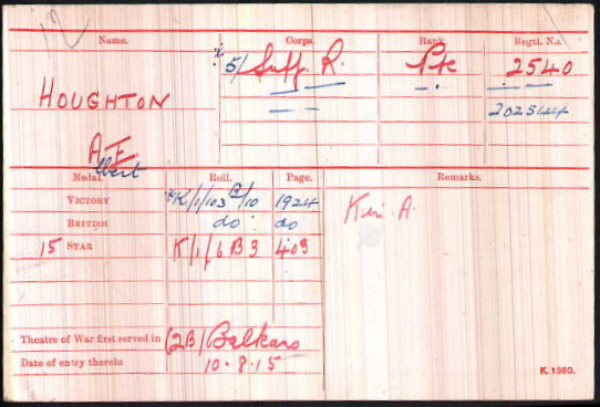 Name. Corps. Rank Regtl. No.
* 5/ Suff. R. Pte 2540
HOUGHTON — " — — " — — " — 202544
A.E.
Albert
Medal. Roll. Page. Remarks.
VICTORY *K/1/103 B/10 1924
BRITISH do : do Kin A.
15 STAR K/1/6 B3 403
Theatre of War first served in (2B) Balkans
Date of entry therein 10.8.15
K. 1380.